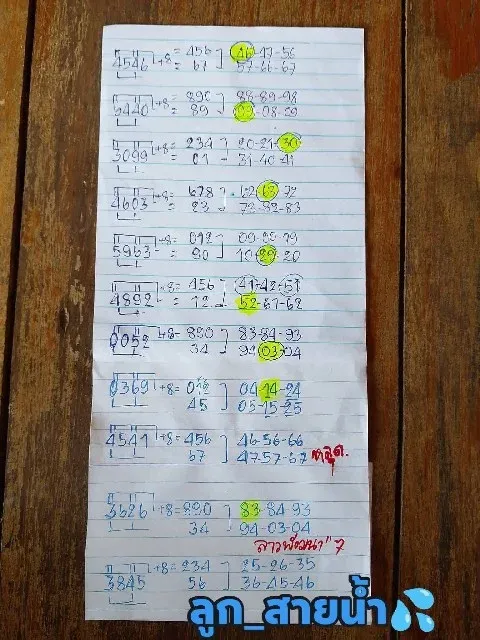 4546 +8 = 456 ] 46-47-56
= 67 ] 57-66-67
5440 +8 = 890 ] 88-89-98
= 89 ] 03-08-09
3099 +8 = 234 ] 20-21-30
= 01 ] 31-40-41
4603 +8 = 678 ] 62-63-72
= 23 ] 73-82-83
5963 +8 = 012 ] 09-99-19
= 90 ] 10-29-20
4892 +8 = 456 ] 41-42-51
= 12 ] 52-61-62
0052 +8 = 890 ] 83-84-93
34 ] 94-03-04
0369 +8 = 0 ] 04-14-24
45 ] 05-15-25
4541 +8 = 456 ] 46-56-66
67 ] 47-57-67
3626 +8 = 890 ] 83-84-93
34 ] 94-03-04
ลาวพัฒนา" 7
3845 +8 = 234 ] 25-26-35
56 ] 36-45-46
ลูก_สายน้ำ💦